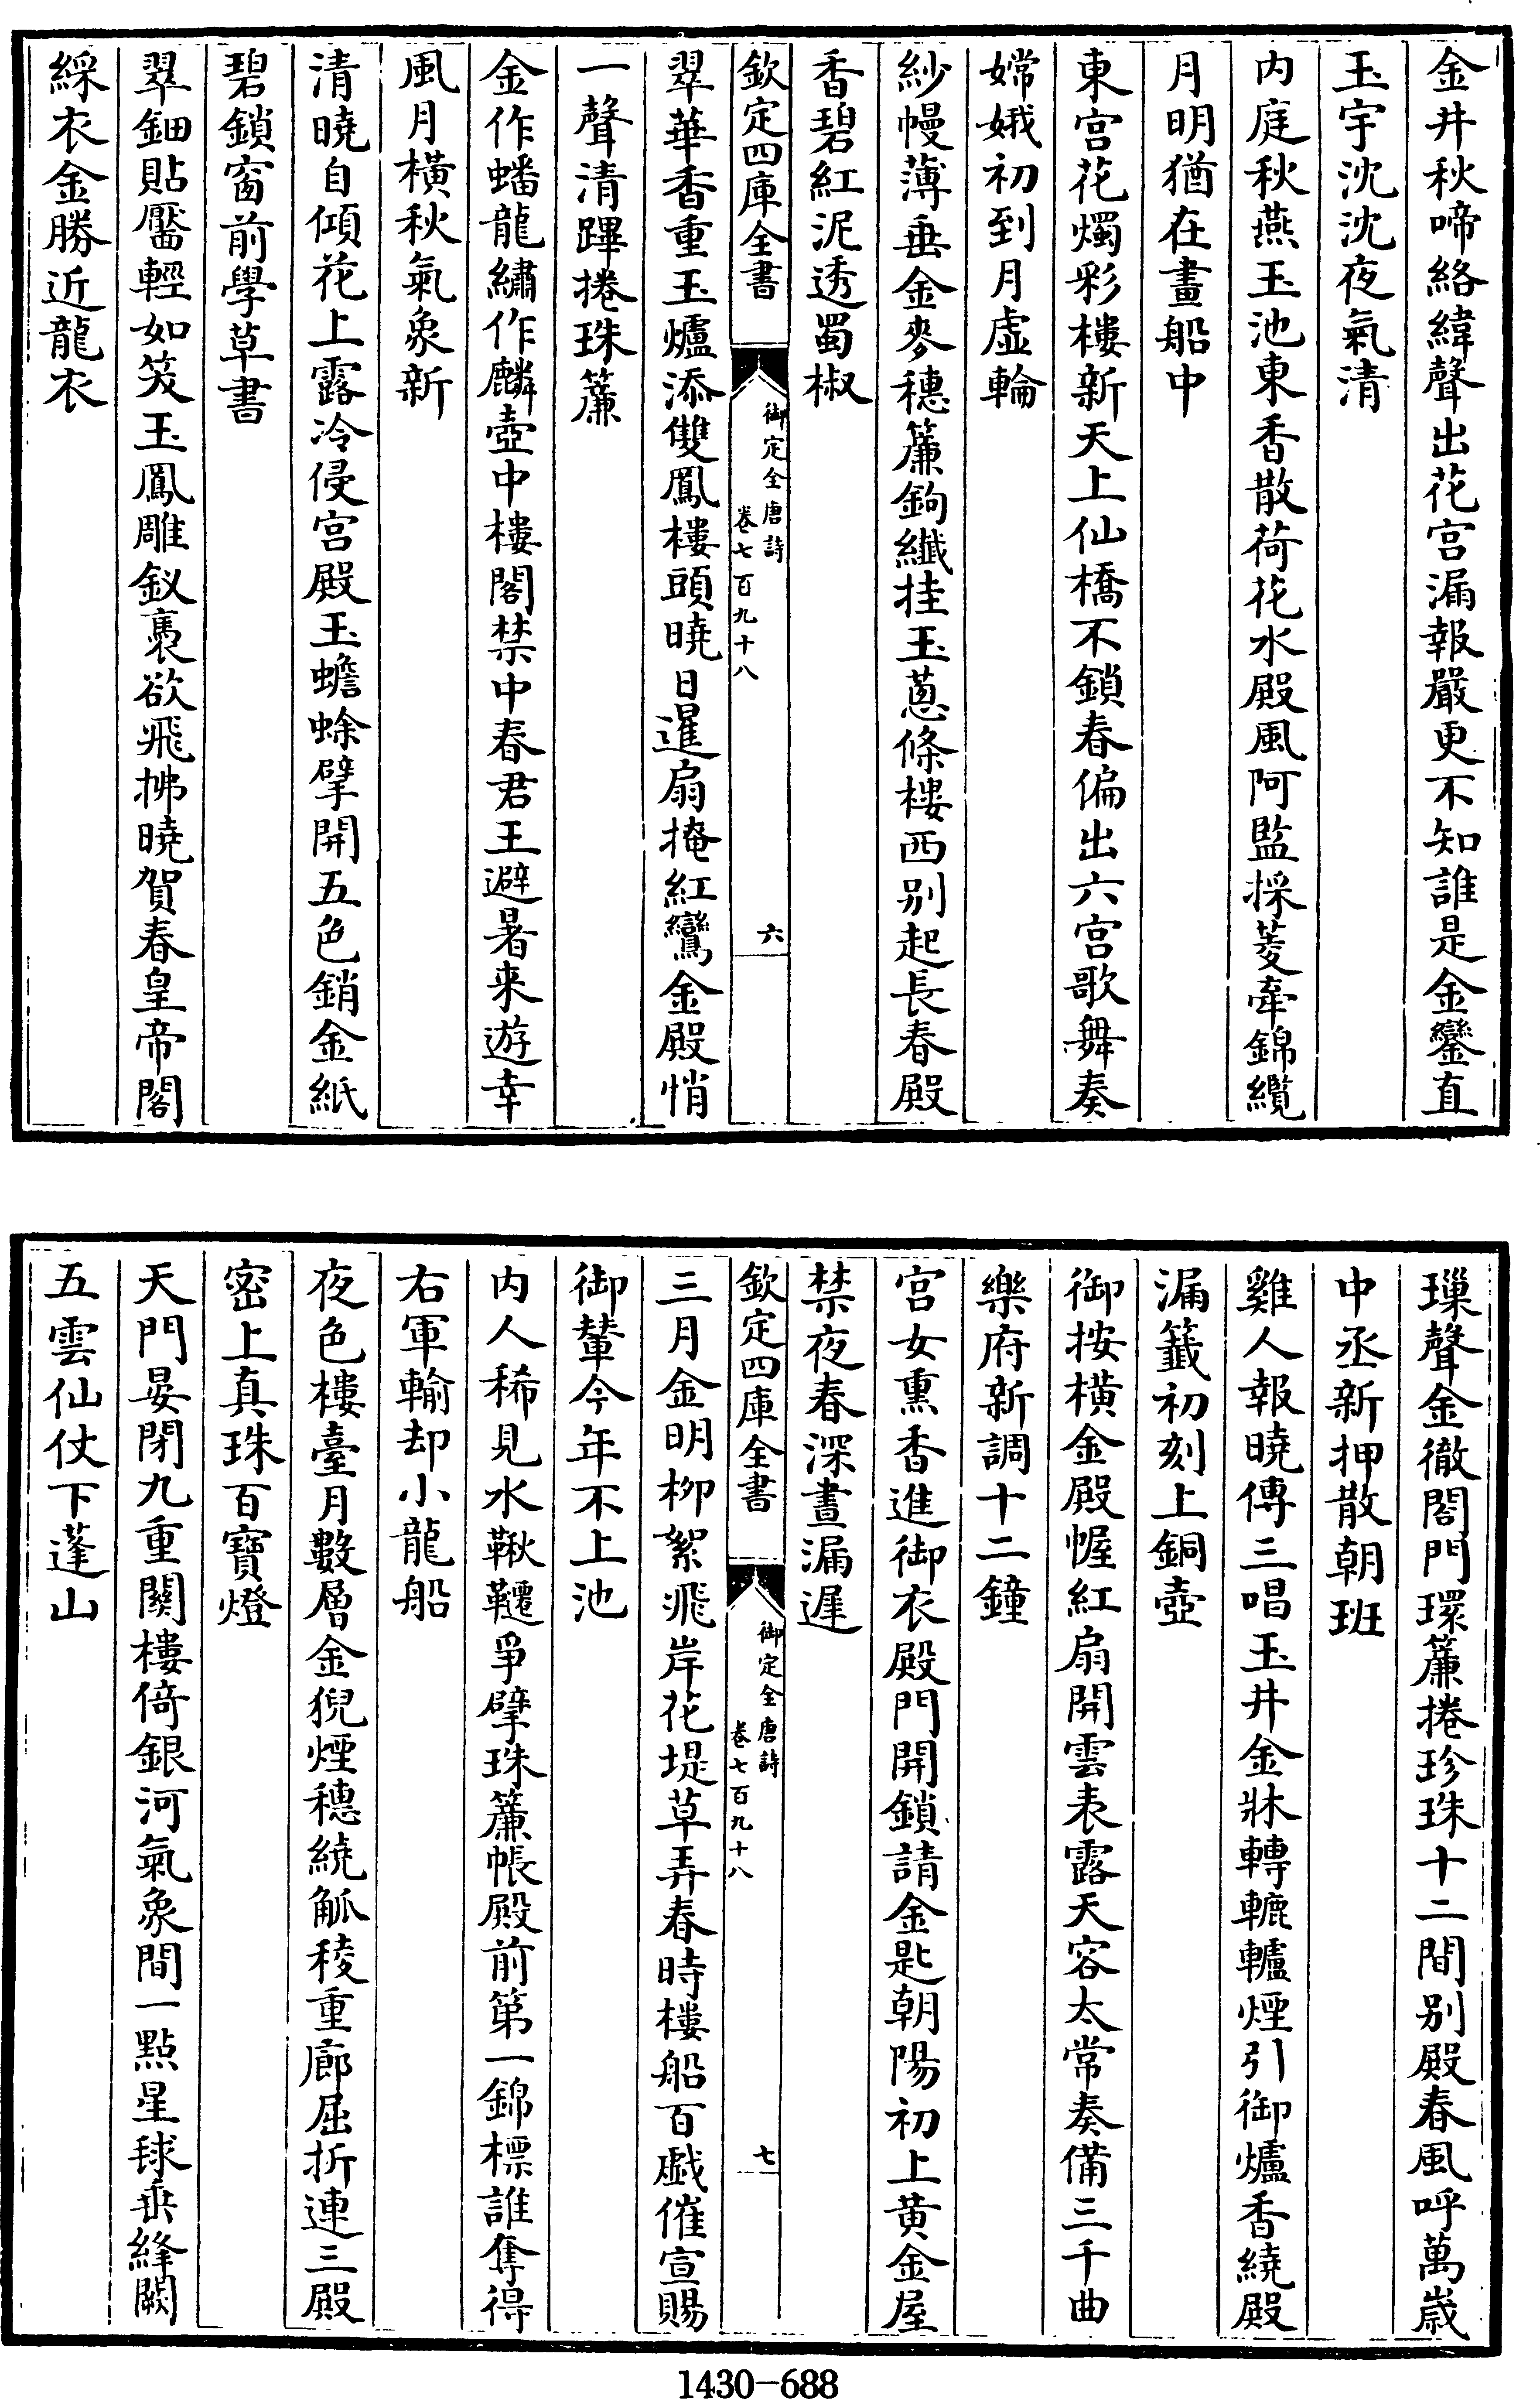 金井秋啼絡緯聲出花宫漏報嚴更不知誰是金鑾直
玉宇沈沈夜氣清
内庭秋燕玉池東香散荷花水殿風阿監採菱牽錦纜
月明猶在畫船中
東宫花燭彩樓新天上仙橋不鎖春偏出六宫歌舞奏
嫦娥初到月虚輪
紗幔薄垂金麥穗簾鉤纎挂玉蔥條樓西别起長春殿
香碧紅泥透蜀椒
欽定四庫全書
御定全唐詩
卷七百九十八
六
翠華香重玉爐添雙鳳樓頭曉日暹扇掩紅鸞金殿悄
一聲清蹕捲珠簾
金作蟠龍繡作麟壺中樓閣禁中春君王避暑来遊幸
風月橫秋氣象新
清曉自傾花上露冷侵宫殿玉蟾蜍擘開五色銷金紙
碧鎖窗前學草書
翠鈿貼靨輕如笑玉鳳雕釵裊欲飛拂曉賀春皇帝閣
綵衣金勝近龍衣
璅聲金徹閤門環簾捲珍珠十二間别殿春風呼萬歳
中丞新押散朝班
雞人報曉傳三唱玉井金牀轉轆轤煙引御爐香繞殿
漏籤初刻上銅壺
御按横金殿幄紅扇開雲表露天容太常奏備三千曲
樂府新調十二鐘
宫女熏香進御衣殿門開鎖請金匙朝陽初上黄金屋
禁夜春深晝漏遲
欽定四庫全書
御定全唐詩
卷七百九十八
七
三月金明柳絮飛岸花堤草弄春時樓船百戲催宣賜
御輦今年不上池
内人稀見水鞦韆爭擘珠簾帳殿前第一錦標誰奪得
右軍輸却小龍船
夜色樓臺月數層金猊煙穗繞觚稜重廊屈折連三殿
密上真珠百寶燈
天門晏閉九重關樓倚銀河氣象間一點星毬垂絳闕
五雲仙仗下蓬山
1430-688